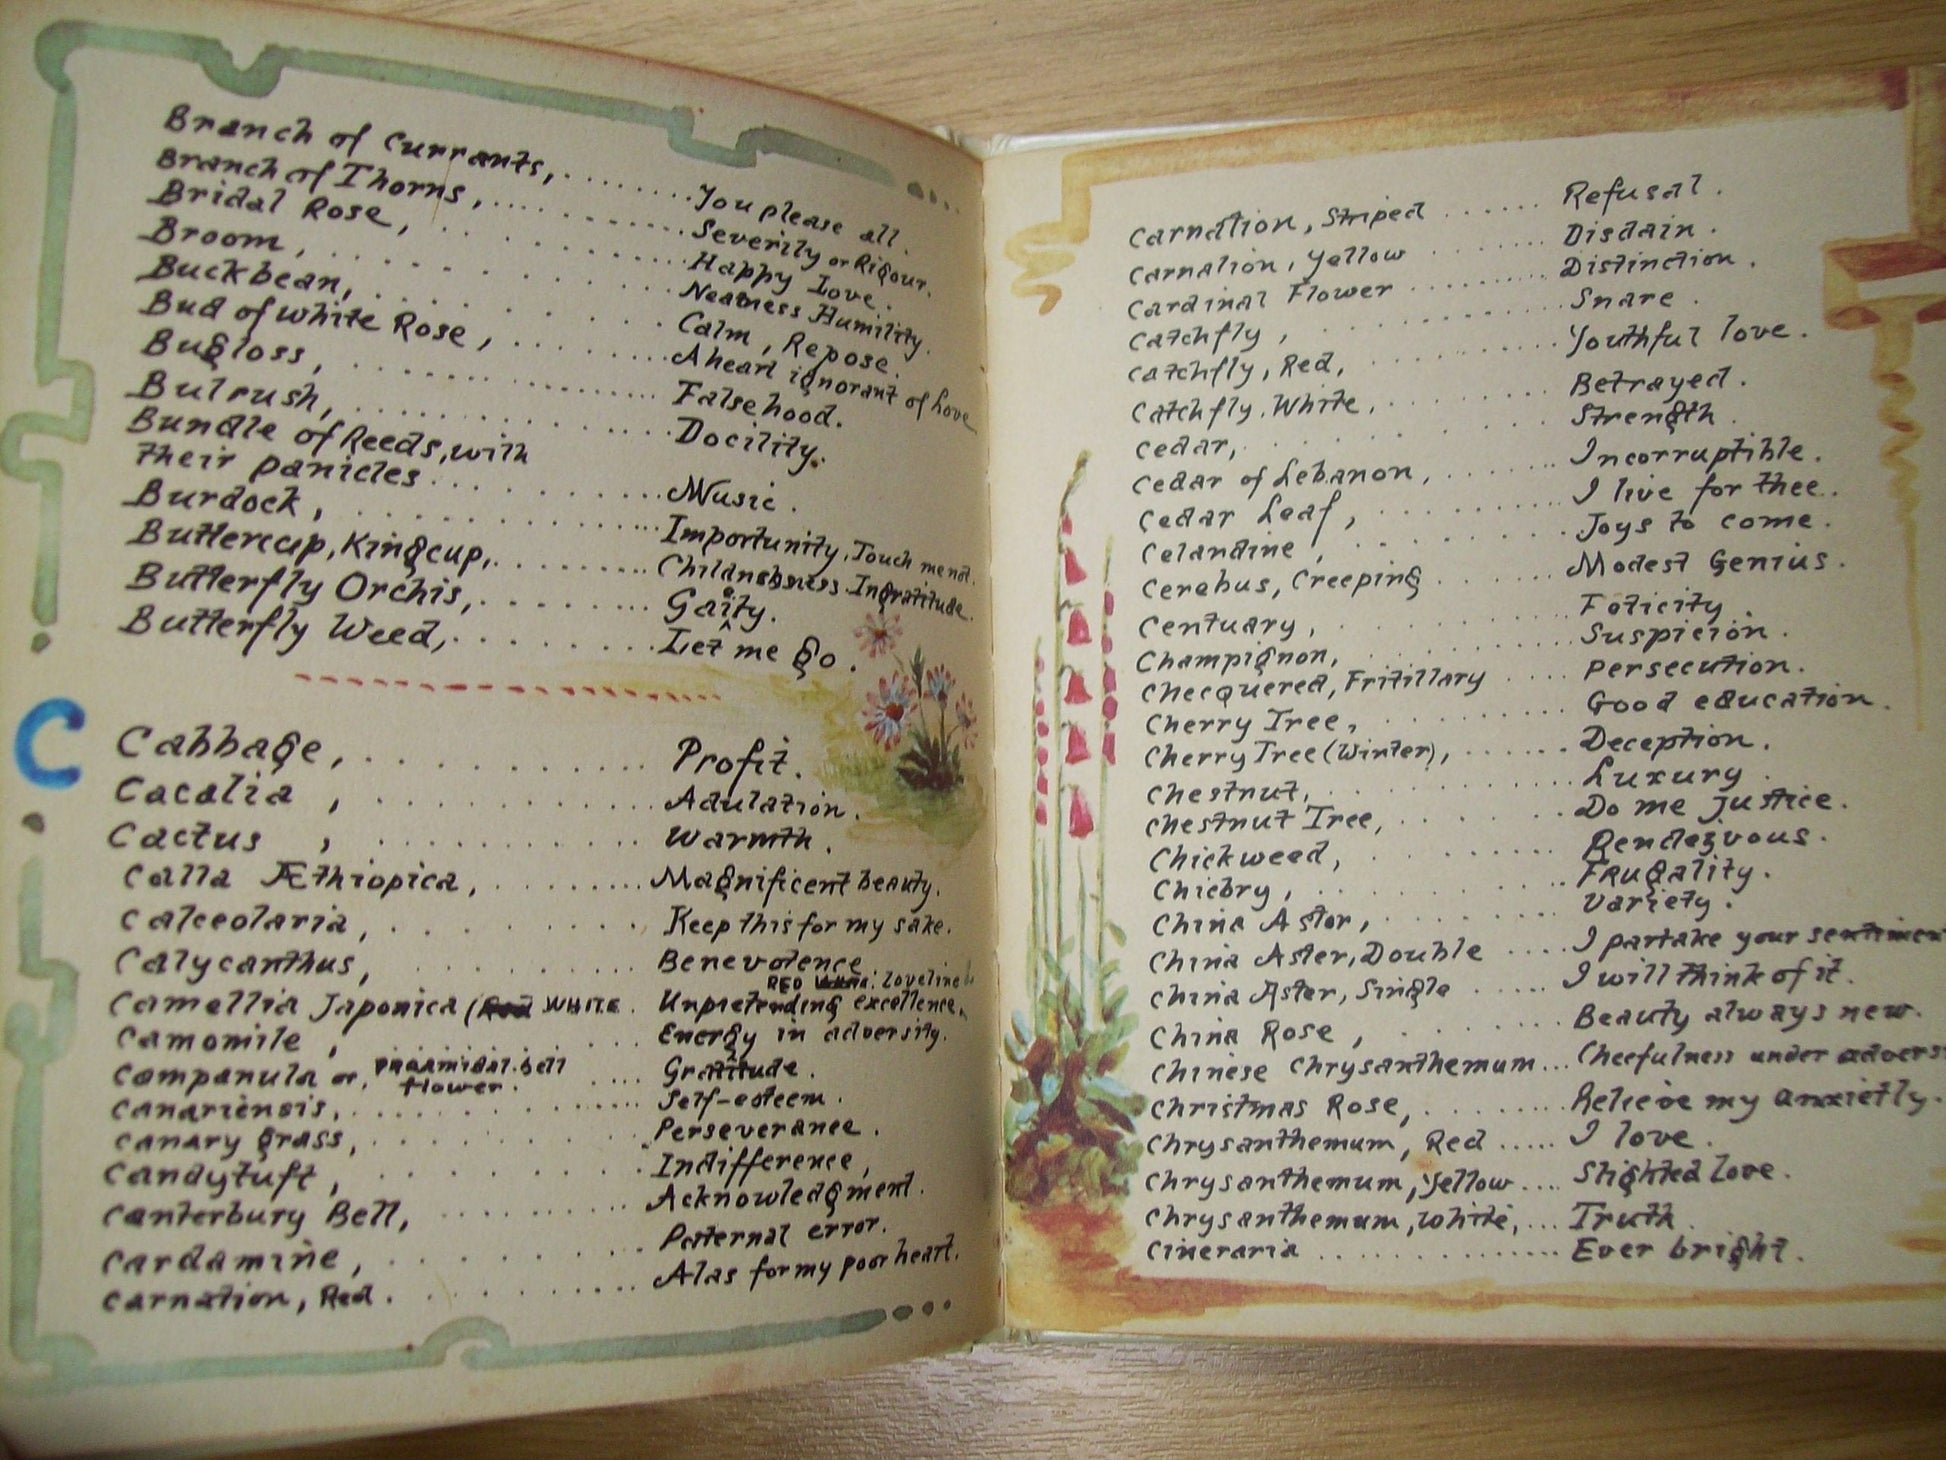 Branch of Currants, . . . . . . . You please all.
Branch of Thorns, . . . . . . . . . Severity or Rigour.
Bridal Rose, . . . . . . . . . Happy Love.
Broom, . . . . . . . . . Neatness Humility.
Buckbean, . . . . . . . . . Calm, Repose.
Bud of white Rose, . . . . . . . . A heart ignorant of Love
Bugloss, . . . . . . . . . Falsehood.
Bulrush, . . . . . . . . . Docility.
Bundle of Reeds, with
their panicles . . . . . . . . . Music.
Burdock, . . . . . . . . . Importunity, Touch me not.
Buttercup, Kingcup, . . . . . . . . Childishness. Ingratitude.
Butterfly Orchis, . . . . . . . Gaiety.
Butterfly Weed, . . . . . . . . Let me go.
C
Cabbage, . . . . . . . . . Profit.
Cacalia, . . . . . . . . . Adulation.
Cactus, . . . . . . . . . Warmth.
Calla Æthiopica, . . . . . . . . Magnificent beauty.
Calceolaria, . . . . . . . Keep this for my sake.
Calycanthus, . . . . . . . Benevolence
RED : Loveliness
Camellia Japonica ( WHITE . Unpretending excellence.
Camomile, . . . Energy in adversity.
Campanula or, Piramidal-bell flower. . . . . Gratitude.
Canariensis, . . . . . . . . . Self-esteem.
Canary grass, . . . . . . . . Perseverance.
Candytuft, . . . . . . . . Indifference,
Canterbury Bell, . . . . . . . . Acknowledgment.
Cardamine, . . . . . . . . Paternal error.
Carnation, Red. . . . . . . . . Alas for my poor heart.
Carnation, Striped . . . . . . Refusal.
Carnation, Yellow . . . . . . . Disdain.
Cardinal Flower . . . . . . . . Distinction.
Catchfly, . . . . . . . . . Snare.
Catchfly, Red, . . . . . . . . . Youthful love.
Catchfly, White, . . . . . . . . Betrayed.
Cedar, . . . . . . . . . Strength.
Cedar of Lebanon, . . . . . . . Incorruptible.
Cedar Leaf, . . . . . . . . . I live for thee.
Celandine, . . . . . . . . Joys to come.
Cerebus, Creeping . . . . . . Modest Genius.
Centuary, . . . . . . . . . Felicity.
Champignon, . . . . . . . . . Suspicion.
Checquered, Fritillary . . . . . Persecution.
Cherry Tree, . . . . . . . . Good education.
Cherry Tree (Winter), . . . . . . . Deception.
Chestnut, . . . . . . . . . Luxury.
Chestnut Tree, . . . . . . . Do me justice.
Chickweed, . . . . . . . . Rendezvous.
Chicory, . . . . . . . . . Frugality.
China Aster, . . . . . . . . Variety.
China Aster, Double . . . . I partake your sentimen
China Aster, Single . . . . . I will think of it.
China Rose, . . . . . . . Beauty always new.
Chinese Chrysanthemum. . . Cheefulness under advers
Christmas Rose, . . . . . . . . Relieve my anxietly.
Chrysanthemum, Red . . . . . I love.
Chrysanthemum, Yellow . . . . Slighted love.
Chrysanthemum, White, . . . Truth.
Cineraria . . . . . . . . . . . . . Ever bright.